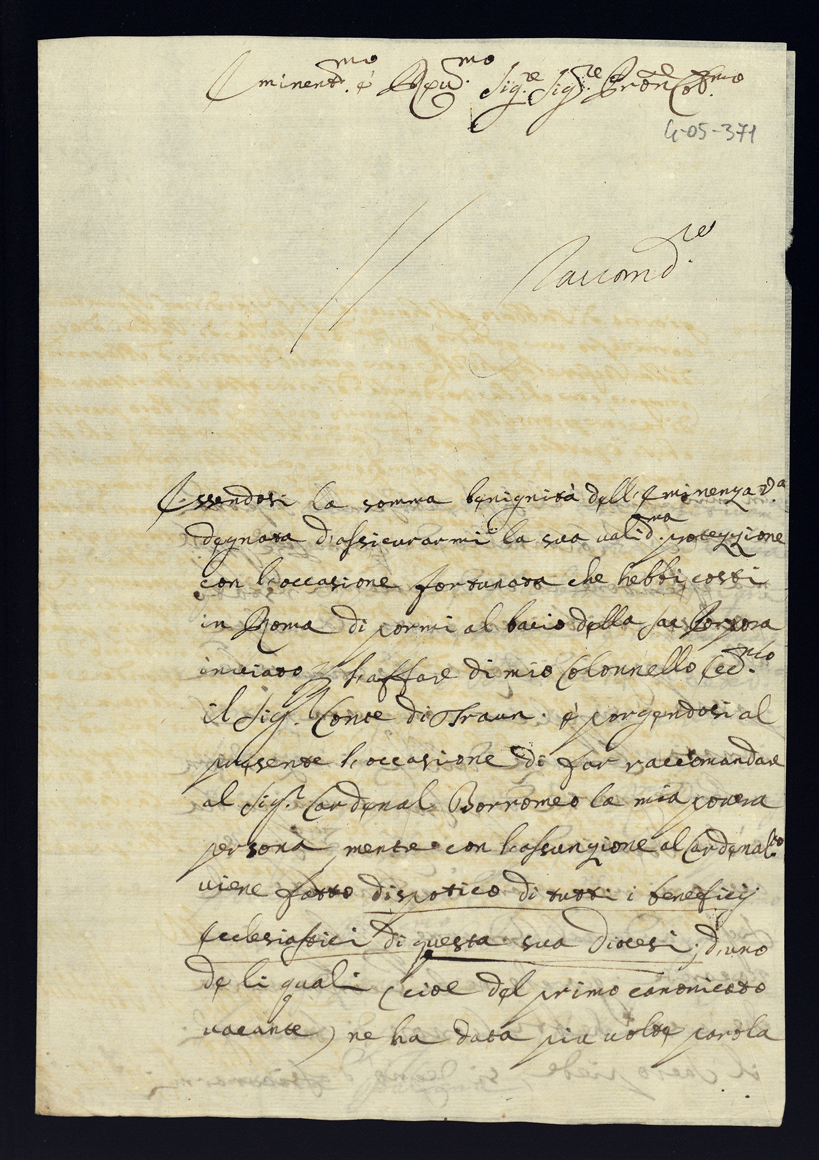 Eminent.mo é Reu.mo Sig.re Sig.re Prōn Col.mo
4-05-371
Raccomd.te
Essendosi la somma benignità dell'Eminenza V.a
degnata d'assicurarmi la sua valid.ma protezzione
con l'occasione fortunata che hebbi costi
in Roma di pormi al bacio della sac. Porpora
inviato l'affare di mio Colonnello
il Sig. Conte di Traun. é porgendosi al
presente l'occasione di far raccomandare
al Sig.r Cardenal Borromeo la mia povera
persona mentre con l'assunzione al Cardenal.to
viene fatto dispotico di tutti i beneficij
Ecclesiastici di questa sua Diocesi; d'uno
de li quali (cioe del primo canonicato
vacante) ne ha data piu volte parola